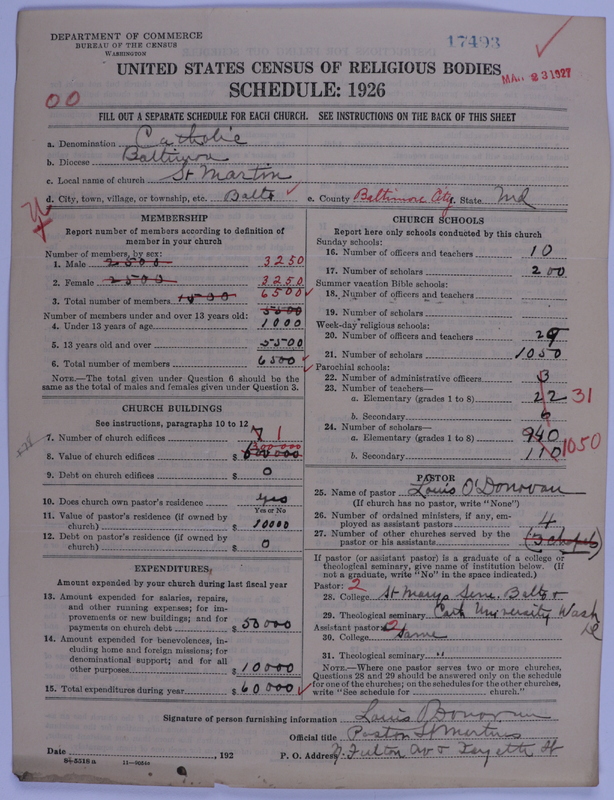 DEPARTMENT OF COMMERCE
BUREAU OF THE CENSUS
WASHINGTON
17493
UNITED STATES CENSUS OF RELIGIOUS BODIES
MAR 23 1927
SCHEDULE: 1926
00
FILL OUT A SEPARATE SCHEDULE FOR EACH CHURCH. SEE INSTRUCTIONS ON THE BACK OF THIS SHEET
a. Denomination Catholic
b. Diocese Baltimore
c. Local name of church St Martin
d. City, town, village, or township, etc. Balto e. County Baltimore City f. State Md
MEMBERSHIP
Report number of members according to definition of
member in your church
Number of members, by sex:
1. Male 2500 3250
2. Female 2500 3250
3. Total number of members 6500
5500
Number of members under and over 13 years old:
4. Under 13 years of age 1000
5. 13 years old and over 5500
6. Total number of members 6500
NOTE.—The total given under Question 6 should be the
same as the total of males and females given under Question 3.
CHURCH BUILDINGS
See instructions, paragraphs 10 to 12
7. Number of church edifices 1
8. Value of church edifices $
9. Debt on church edifices $ 0
10. Does church own pastor's residence yes
Yes or No
11. Value of pastor's residence (if owned by
church) $ 10000
12. Debt on pastor's residence (if owned by
church) $ 0
EXPENDITURES
Amount expended by your church during last fiscal year
13. Amount expended for salaries, repairs,
and other running expenses; for im-
provements or new buildings; and for
payments on church debt $ 50000
14. Amount expended for benevolences, in-
cluding home and foreign missions; for
denominational support; and for all
other purposes $ 10000
15. Total expenditures during year $ 60000
CHURCH SCHOOLS
Report here only schools conducted by this church
Sunday schools:
16. Number of officers and teachers 10
17. Number of scholars 200
Summer vacation Bible schools:
18. Number of officers and teachers
19. Number of scholars
Week-day religious schools:
20. Number of officers and teachers 29
21. Number of scholars 1050
Parochial schools:
22. Number of administrative officers 3
23. Number of teachers—
a. Elementary (grades 1 to 8) 22 31
b. Secondary 6
24. Number of scholars—
a. Elementary (grades 1 to 8) 940
1050
b. Secondary 110
PASTOR
25. Name of pastor Louis O'Donovan
(If church has no pastor, write "None")
26. Number of ordained ministers, if any, em-
ployed as assistant pastors 4
27. Number of other churches served by the
pastor or his assistants (3 chapels)
If pastor (or assistant pastor) is a graduate of a college or
theological seminary, give name of institution below. (If
not a graduate, write "No" in the space indicated.)
Pastor: 2
28. College St Marys Sem. Balto &
29. Theological seminary Cath University Wash
DC
Assistant pastor: 2
30. College Same
31. Theological seminary "
NOTE.—Where one pastor serves two or more churches,
Questions 28 and 29 should be answered only on the schedule
for one of the churches; on the schedules for the other churches,
write "See schedule for church."
Signature of person furnishing information Louis O'Donovan
Official title Pastor St Martins
Date , 192 P. O. Address N Fulton Av & Fayette St
8-5518a 11-90344